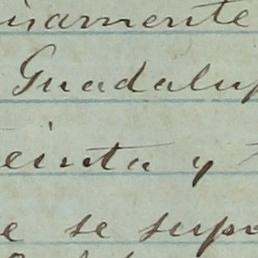 namente
Guadalup
einta y
e se supo